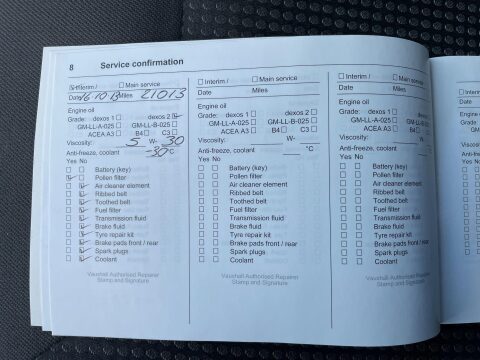 8 Service confirmation
Interim / Main service
Date 16.10.13 Miles 21013
Engine oil
Grade: dexos 1 dexos 2
GM-LL-A-025 GM-LL-B-025
ACEA A3 B4 C3
Viscosity: 5 W- 30
Anti-freeze, coolant -30 °C
Yes No
Battery (key)
Pollen filter
Air cleaner element
Ribbed belt
Toothed belt
Fuel filter
Transmission fluid
Brake fluid
Tyre repair kit
Brake pads front / rear
Spark plugs
Coolant
Vauxhall Authorised Repairer
Stamp and Signature
Interim / Main service
Date Miles
Engine oil
Grade: dexos 1 dexos 2
GM-LL-A-025 GM-LL-B-025
ACEA A3 B4 C3
Viscosity: W-
Anti-freeze, coolant °C
Yes No
Battery (key)
Pollen filter
Air cleaner element
Ribbed belt
Toothed belt
Fuel filter
Transmission fluid
Brake fluid
Tyre repair kit
Brake pads front / rear
Spark plugs
Coolant
Vauxhall Authorised Repairer
Stamp and Signature
Interim / Main service
Date Miles
Engine oil
Grade: dexos 1 dexos 2
GM-LL-A-025 GM-LL-B-025
ACEA A3 B4 C3
Viscosity: W-
Anti-freeze, coolant °C
Yes No
Battery (key)
Pollen filter
Air cleaner element
Ribbed belt
Toothed belt
Fuel filter
Transmission fluid
Brake fluid
Tyre repair kit
Brake pads front / rear
Spark plugs
Coolant
Vauxhall Authorised Repairer
Stamp and Signature